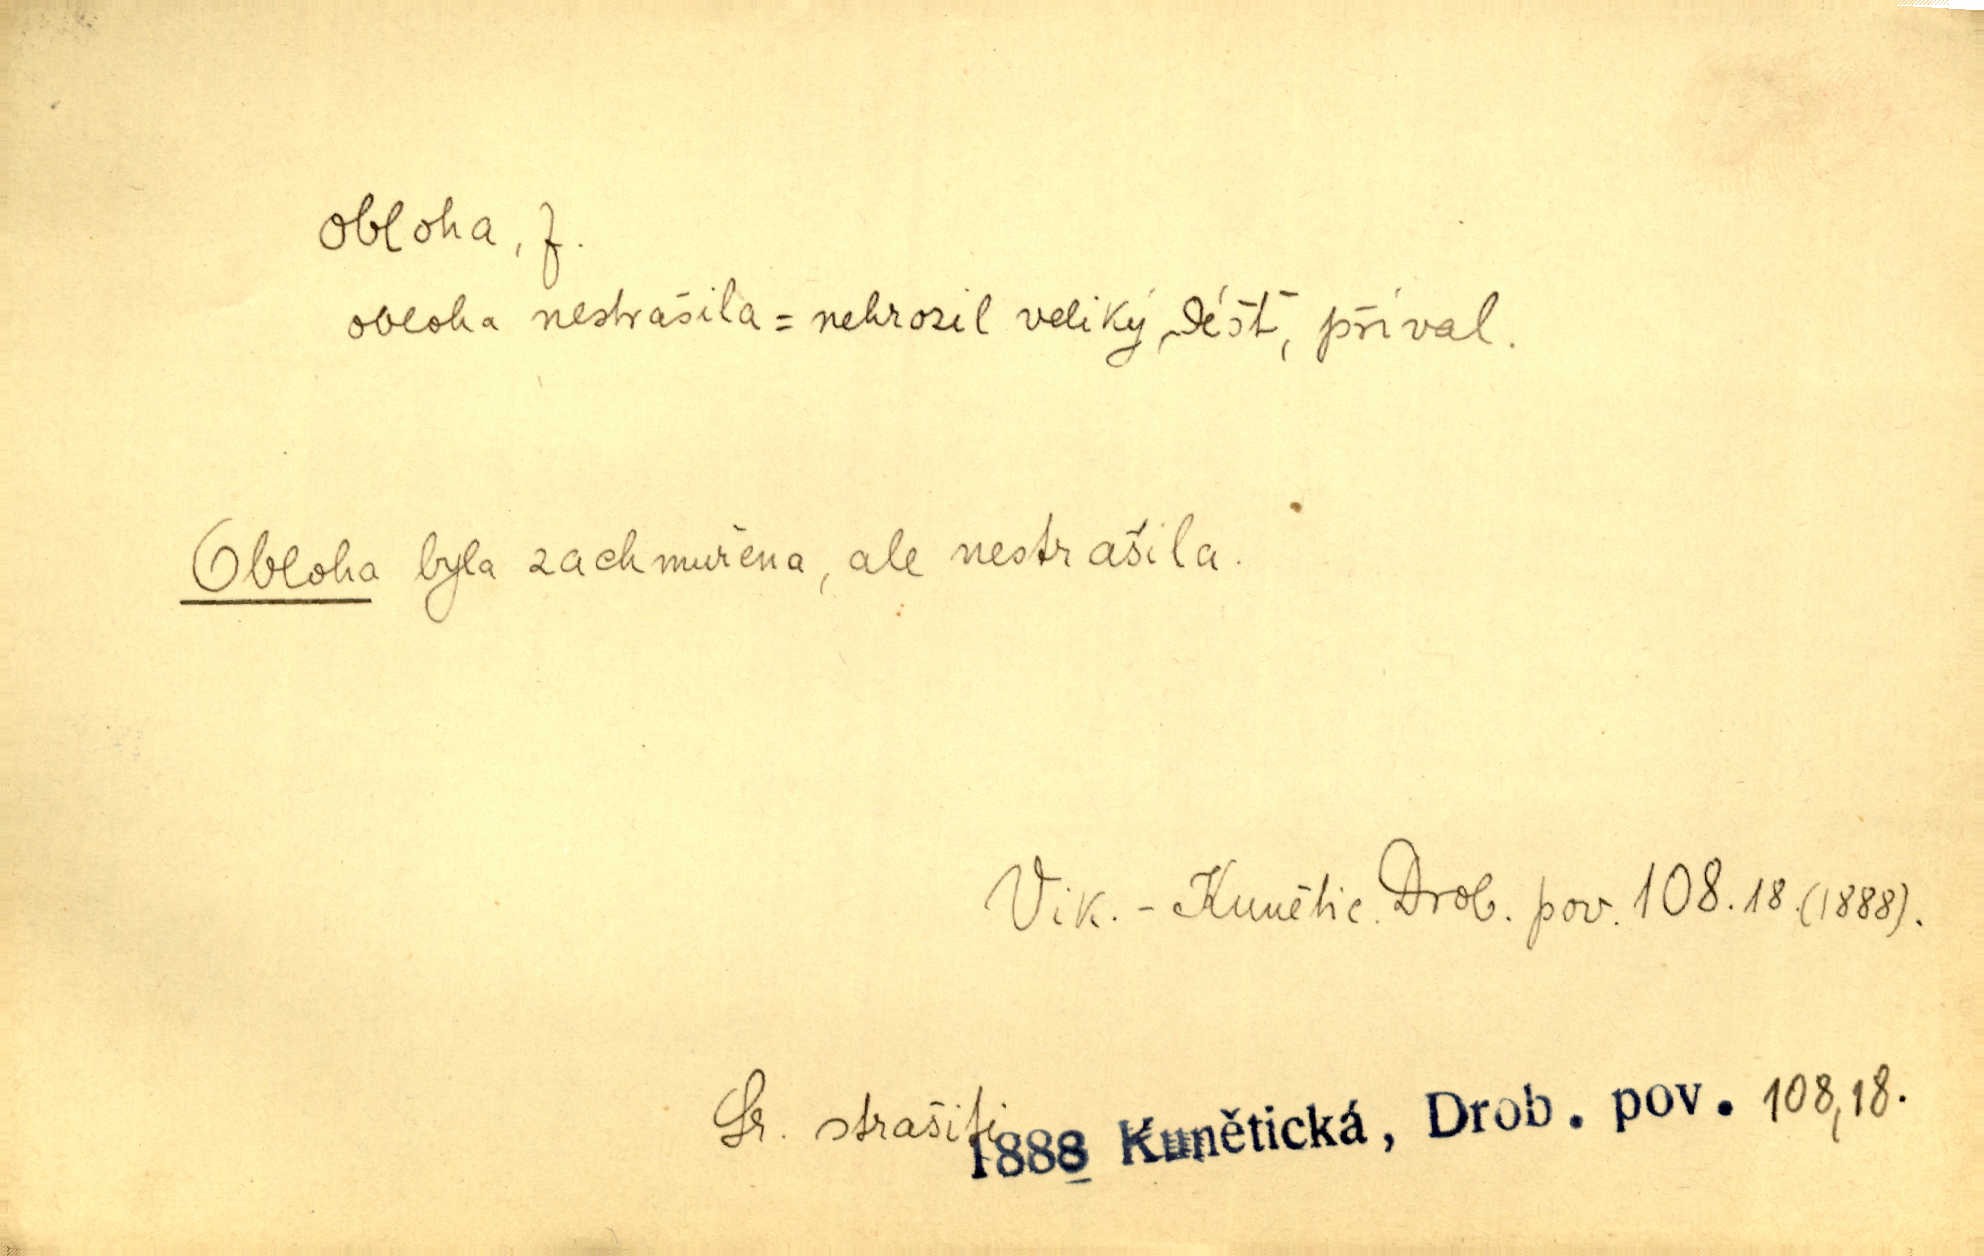 obloha, f.
obloha nestrašila = nehrozil veliký déšť, příval.
Obloha byla zachmuřena, ale nestrašila.
Vik. - Kunětic. Drob. pov. 108. 18. (1888).
Sr. strašiti
1888 Kunětická, Drob. pov. 108,18.